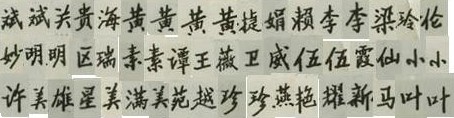 斌斌关贵海黄黄黄黄捷娟赖李李梁玲伦
妙明明区瑞素素谭王薇卫威伍伍霞仙小小
许美雄星美满美苑越珍珍燕艳耀新马叶叶